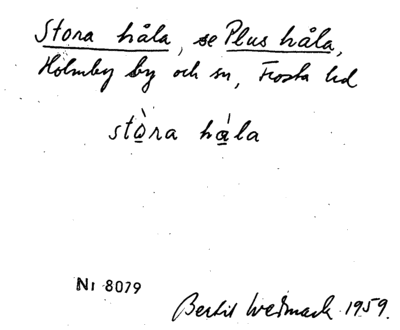 Stora håla, se Plus håla,
Holmby by och sn, Frosta hd
stò̲ra hà̲la
Nr 8079
Bertil Wedmark 1959.